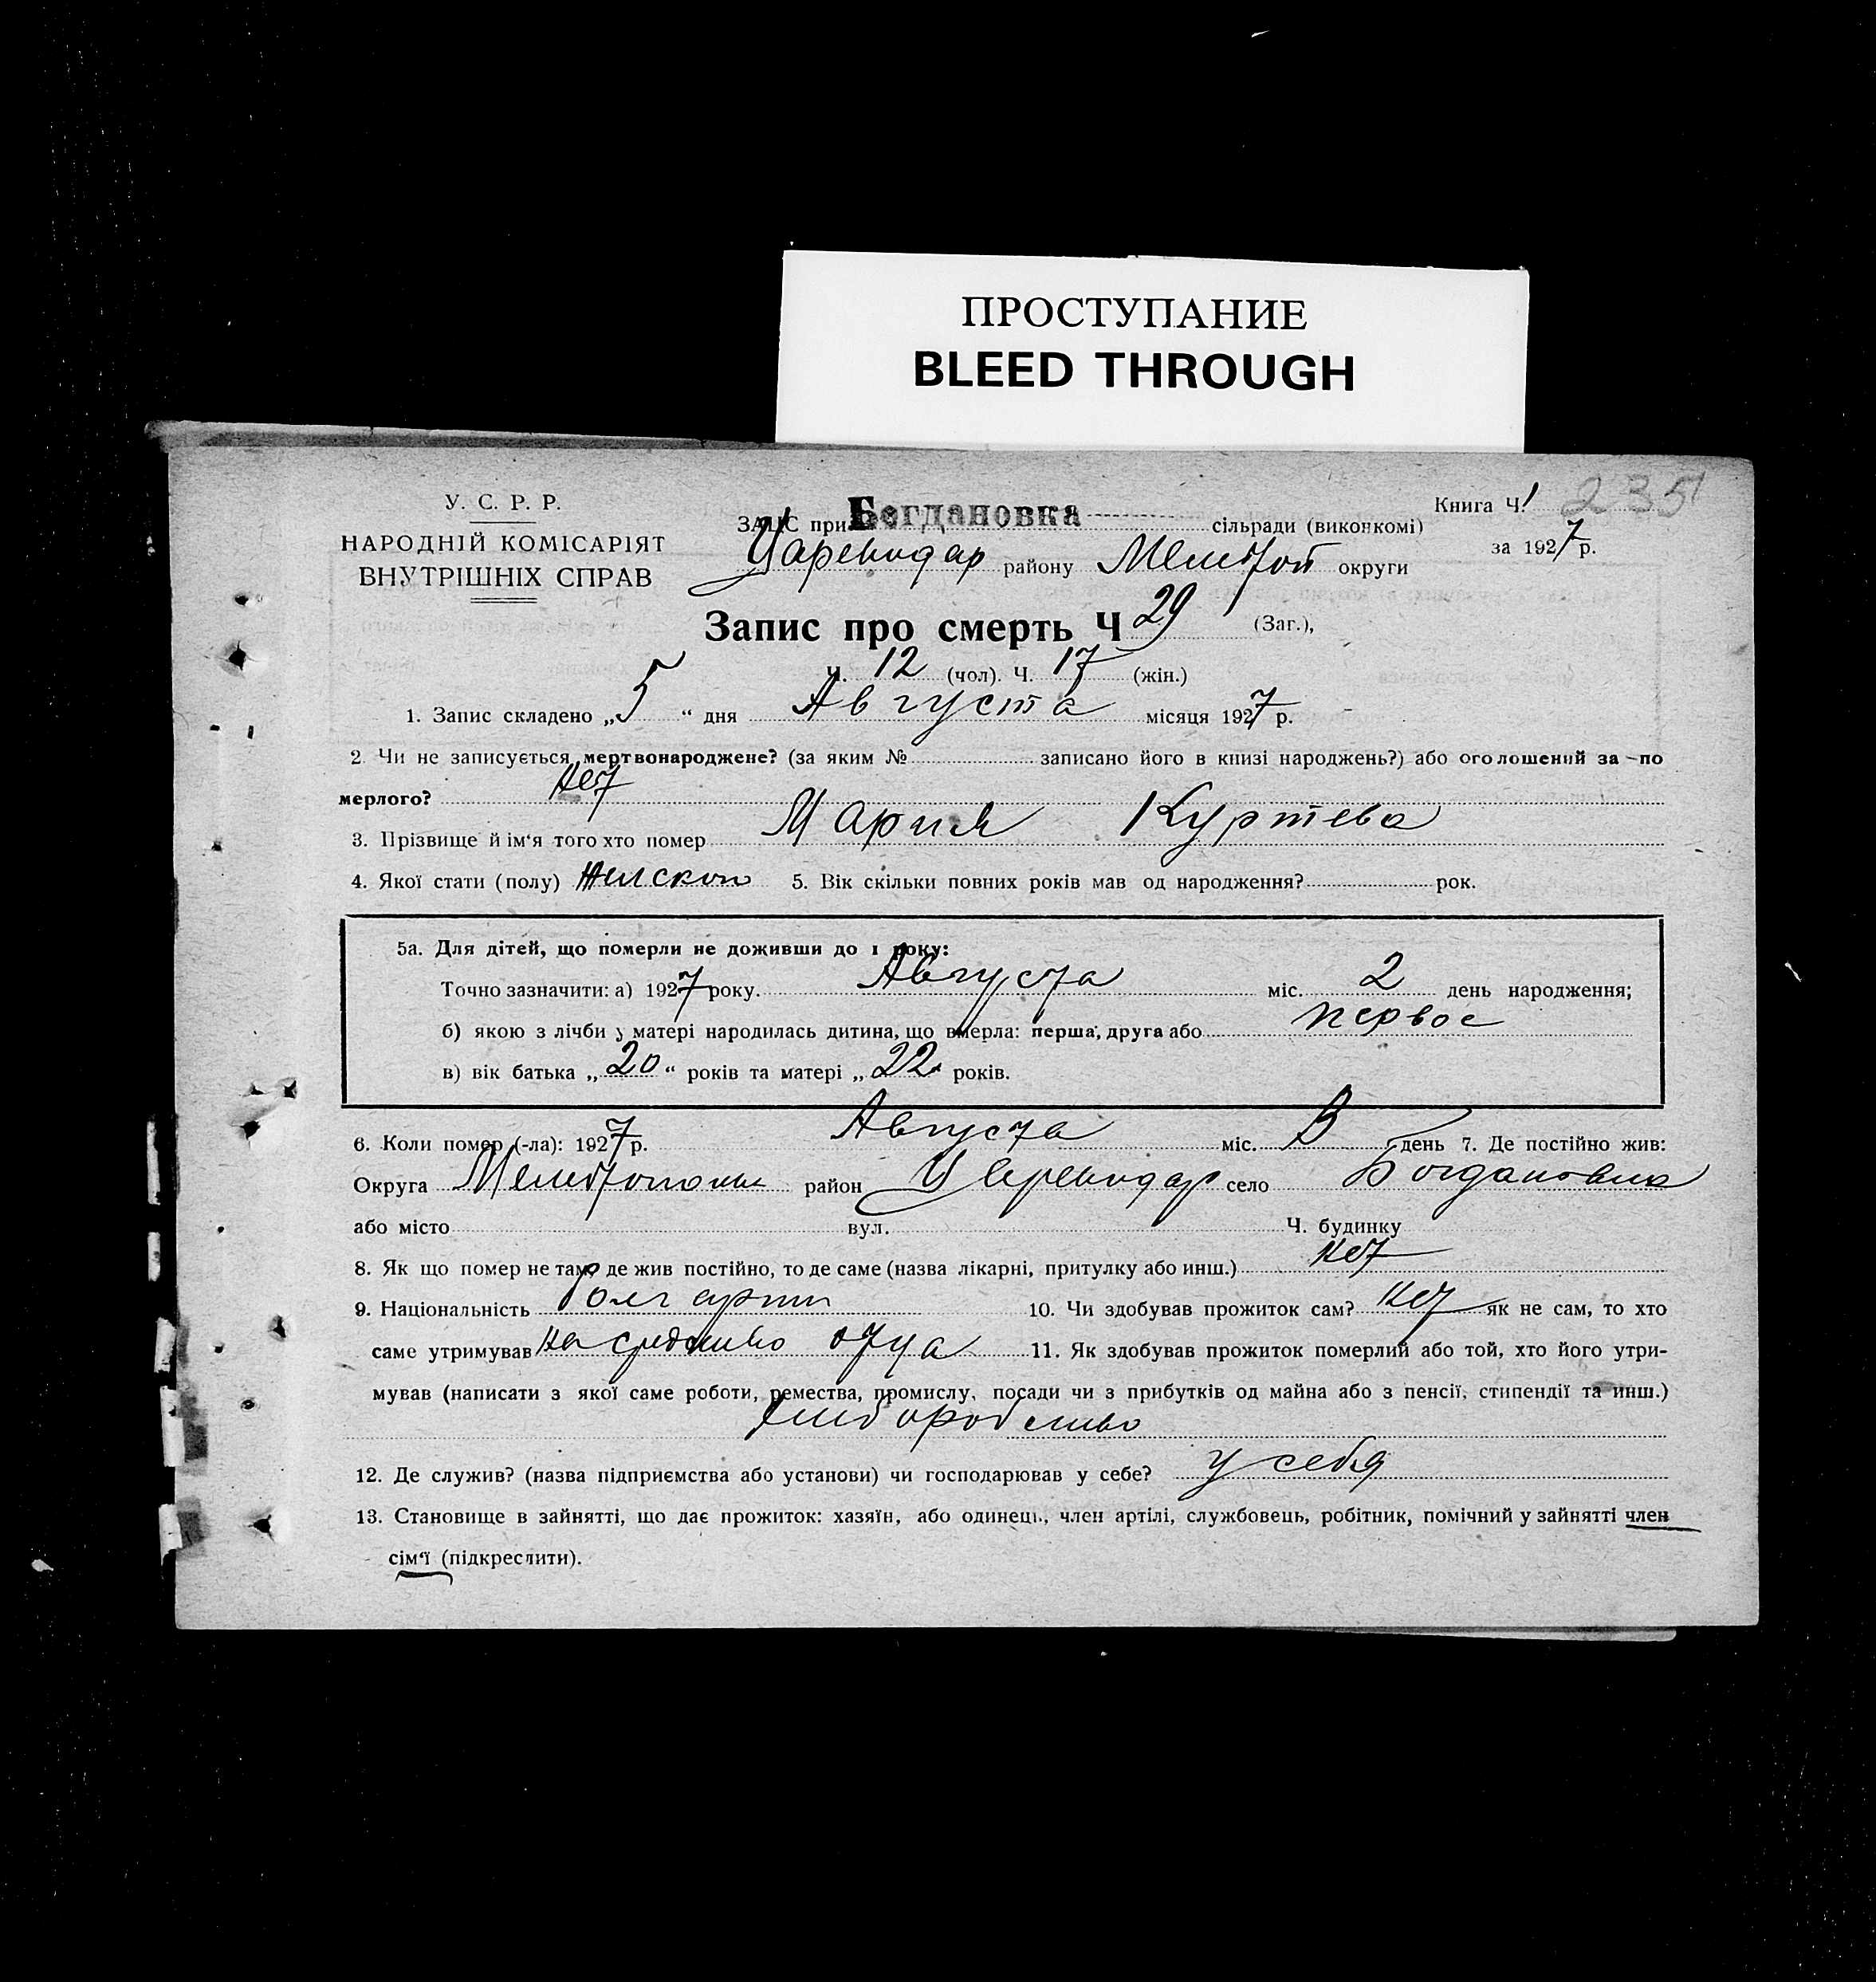 ПРОСТУПАНИЕ
BLEED THROUGH
235
У. С. Р. Р.
НАРОДНІЙ КОМІСАРІЯТ
ВНУТРІШНІХ СПРАВ
Книга Ч. 1
за 1927 р.
ЗАПС при Богдановка сільради (виконкомі)
району Мелитоп округи
Запис про смерть Ч 29 (Заг.),
Ч. 12 (чол). Ч. 17 (жін.)
1. Запис складено „5“ дня Августа місяця 1927 р.
2. Чи не записується мертвонароджене? (за яким № записано його в книзі народжень?) або оголошений за по
мерлого? нет
3. Прізвище й ім'я того хто помер Мария Куртева
4. Якої стати (полу) женской 5. Вік скільки повних років мав од народження? рок.
5а. Для дітей, що померли не доживши до 1 року:
Точно зазначити: а) 1927 року. Августа міс. 2 день народження;
б) якою з лічби у матері народилась дитина, що вмерла: перша, друга або первое
в) вік батька „20“ років та матері „22“ років.
6. Коли помер (-ла): 1927 р. Августа міс. день 7. Де постійно жив:
Округа район село Богдановка
або місто вул. Ч. будинку
8. Як що помер не там, де жив постійно, то де саме (назва лікарні, притулку або инш.) нет
9. Національність 10. Чи здобував прожиток сам? нет як не сам, то хто
саме утримував на средство отца 11. Як здобував прожиток померлий або той, хто його утри-
мував (написати з якої саме роботи, ремества, промислу, посади чи з прибутків од майна або з пенсії, стипендії та инш.)
12. Де служив? (назва підприємства або установи) чи господарював у себе? у себя
13. Становище в зайнятті, що дає прожиток: хазяїн, або одинець, член артілі, службовець, робітник, помічний у зайнятті член
сім'ї (підкреслити).